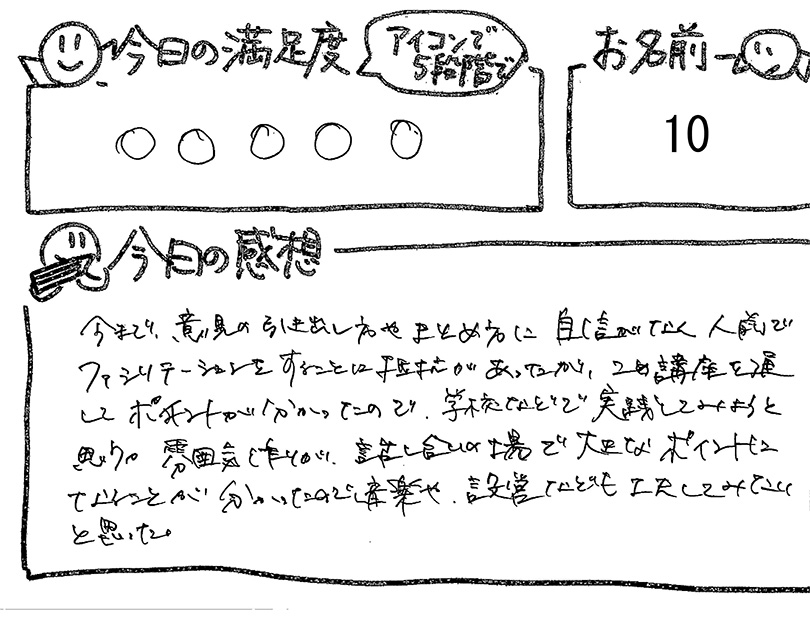 今日の満足度
アイコンで
5段階で
お名前
10
今日の感想
今まで、意見の引き出し方やまとめ方に自信がなく人前で
ファシリテーションをすることに抵抗があったが、この講座を通
してポイントが分かったので、学校などで実践してみようと
思う。雰囲気作りが、話し合いの場で大切なポイントに
なることが分かったので音楽や、設営なども工夫してみたい
と思った。